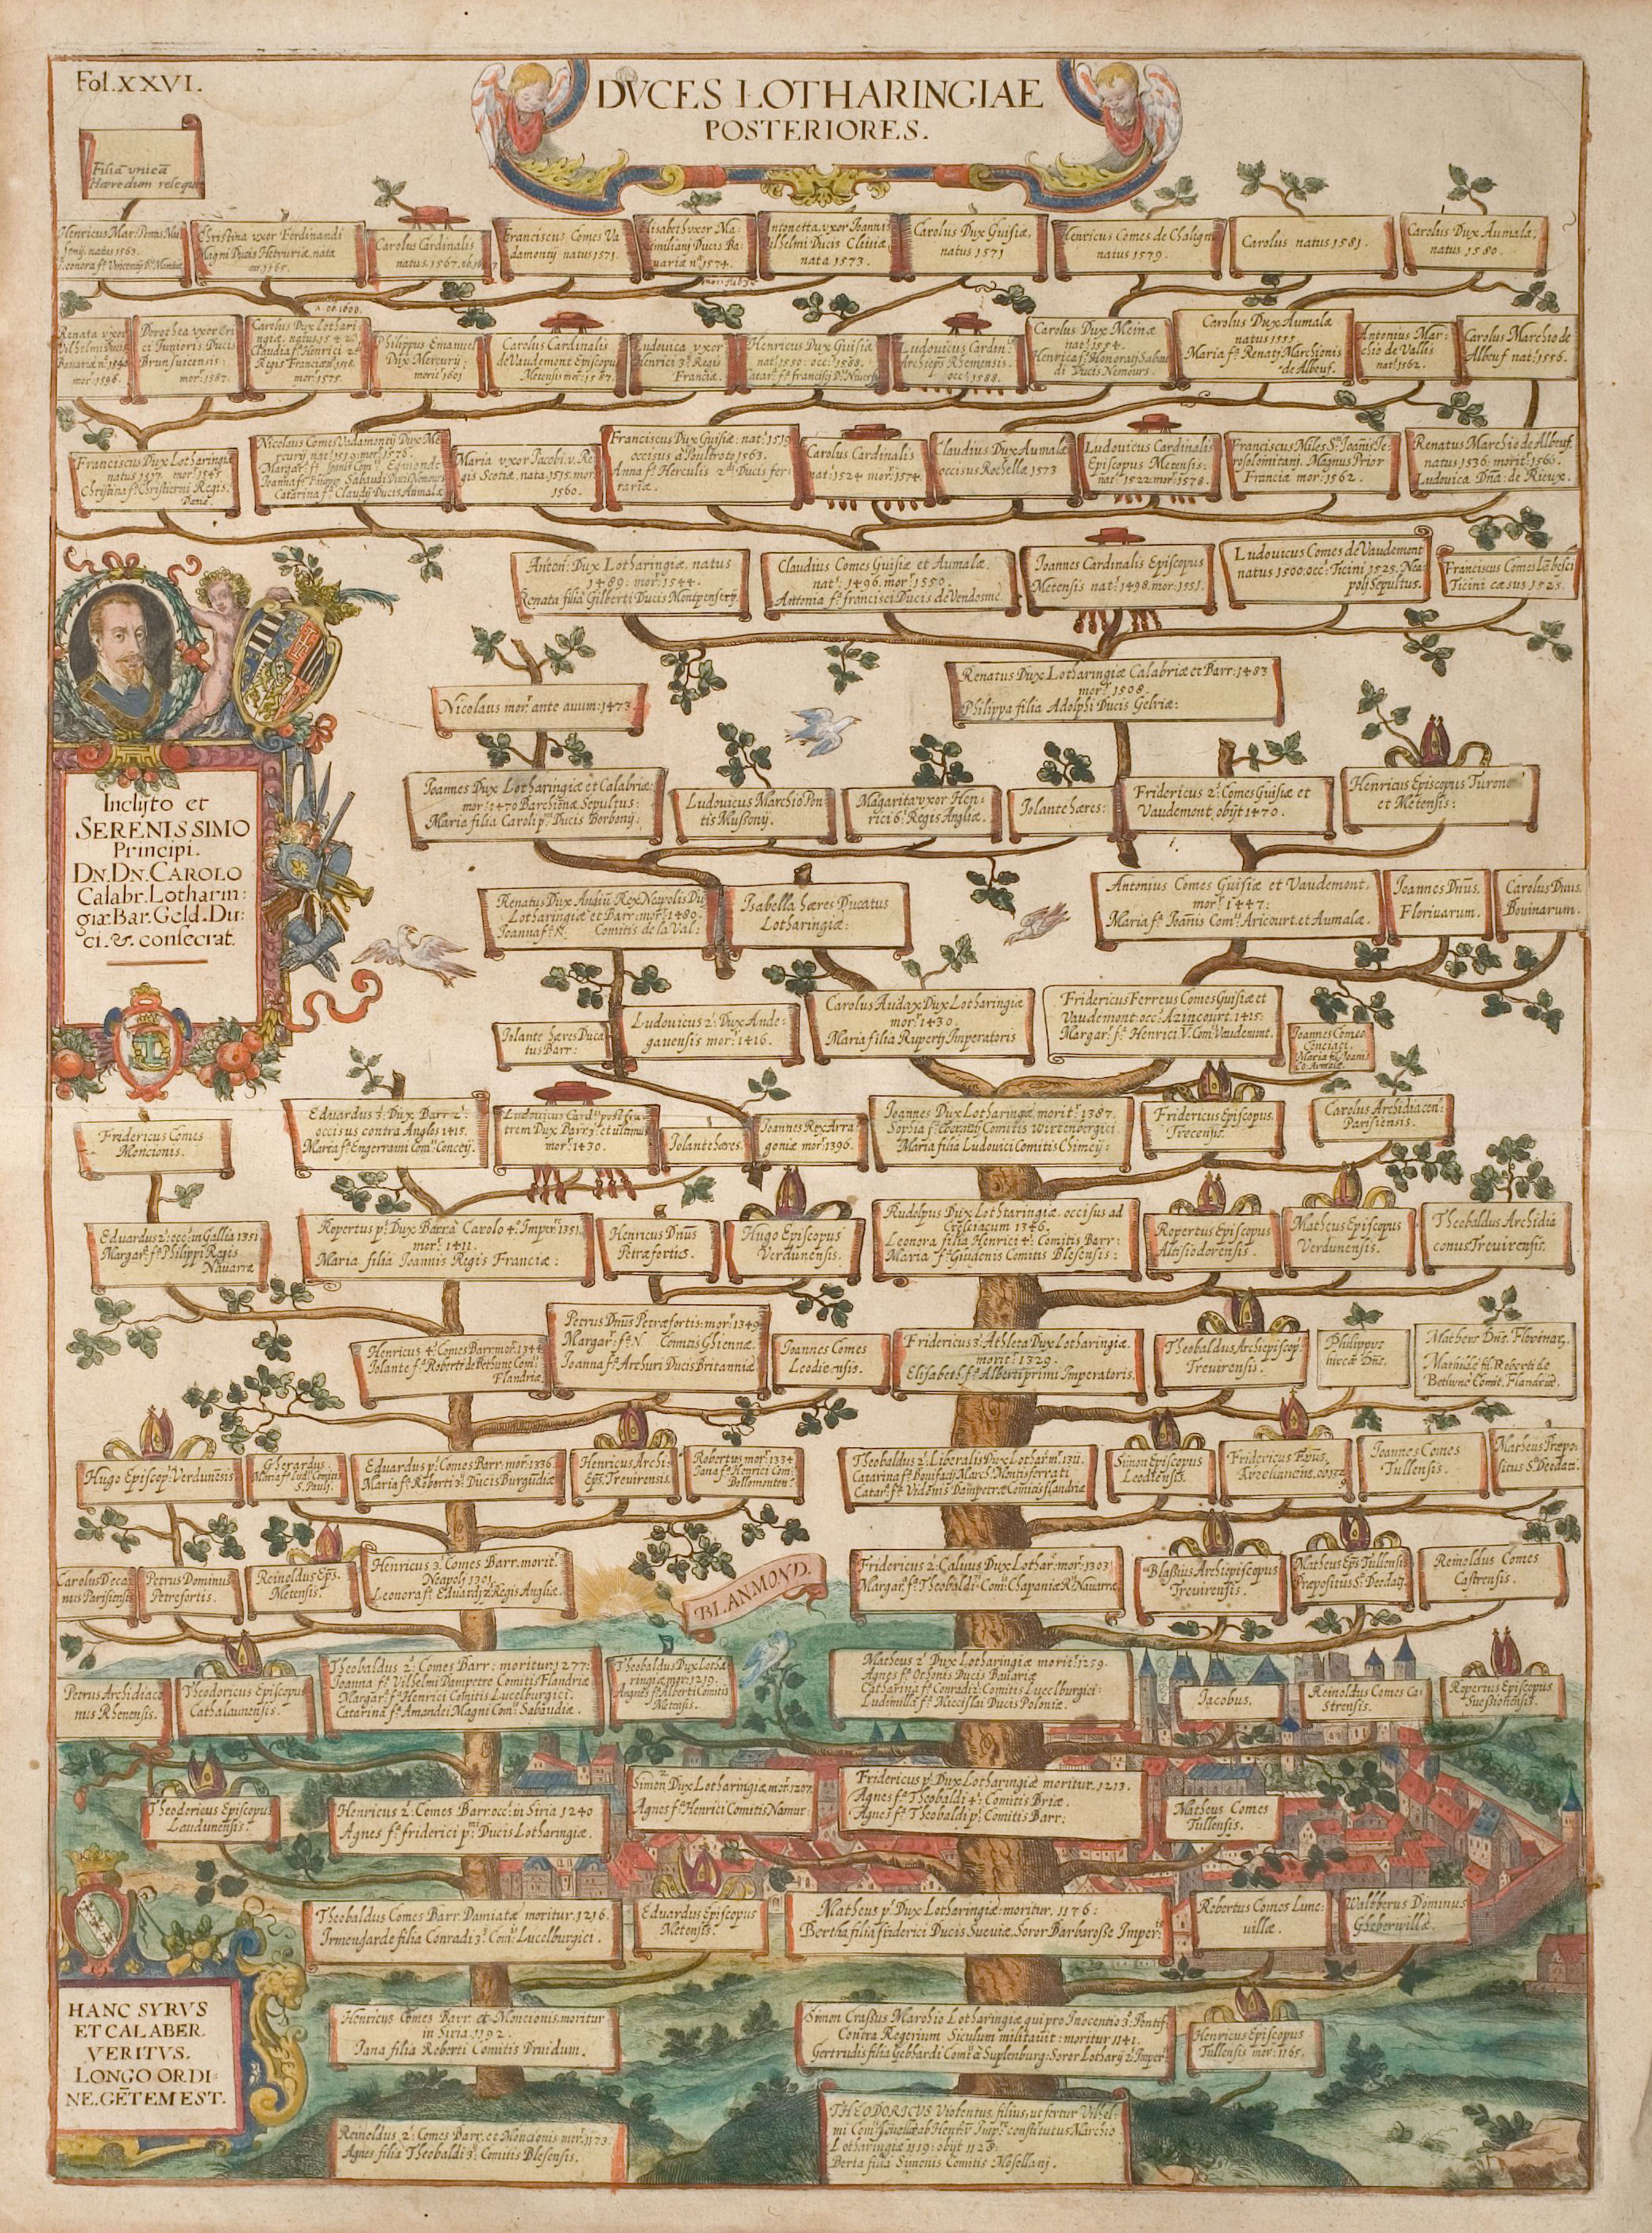 Fol.XXVI.
DVCES LOTHARINGIAE
POSTERIORES.
Filiā vnicā
Hæredion
Henricus Mar:
natus 1563.
Christina vxor Ferdinandi
Magni Ducis Hetruriæ, nata
Carolus Cardinalis
natus.1567.
Franciscus Comes Va
damontij natus 1571.
Elisabetha vxor Ma:
imiliani Ducis Ba:
uariæ n:1574.
Antonetta,vxor Ioannis
Ducis Cliuiæ,
nata 1573.
Carolus Dux Guisiæ,
natus 1571
Henricus Comes de Chaligni
natus 1579.
Carolus natus 1581.
Carolus Dux Aumalæ,
natus 1580.
Renata vxor
mor:1596.
Dorothea vxor Eri
ci Iunioris Ducis
Brunsuicensis:
mor:1587.
Carolus Dux Lothari
Claudia fª Henrici 2ª
mor:1575.
Philippus Emanuel
Dux Mercurij:
morit 1601
Carolus Cardinalis
de Vaudemont Episcopu
Metensis mor:1587.
Ludouica vxor
Henrici 3ª Regis
Franciæ.
Henricus Dux Guisiæ
nat:1550:occ:1588.
Ludouicus Cardin:
Archieps Rhemensis.
occ:1588.
Carolus Dux Meinæ
nat:1554.
di Ducis Nemours.
Carolus Dux Aumalæ
natus 1555.
Maria fª Renati Marchionis
de Albeuf.
Antonius Mar:
chio de Vallis
nat:1562.
Carolus Marchio de
Albeuf nat:1556.
Franciscus Dux Lotharingiæ
natus 1517. mor:1545
Christina fª Christierni Regis
Daniæ.
Nicolaus Comes Vadamontij Dux Me
rcurij
Catarina fª Claudij Ducis Aumalæ
Maria vxor Iacobi.v.Re
gis Scotiæ, nata.1515.mor:
1560.
Franciscus Dux Guisiæ: nat:1519
occisus à Poultroto 1563.
Anna fª Herculis 2di Ducis fer
rariæ.
Carolus Cardinalis
nat:1524 mor:1574.
Claudius Dux Aumalæ
occisus Rochellæ 1573
Ludouicus Cardinalis
Episcopus Metensis:
nat:1522 mor:1578.
Franciscus Miles Stī Ioānis Ie:
rosolomitani. Magnus Prior
Franciæ mor:1562.
Renatus Marchio de Albeuf.
natus 1536: morit:1560.
Ludouica Dnā: de Rieux.
Anton: Dux Lotharingiæ, natus
1489: mor:1544.
Renata filia Gilberti Ducis Montpenserij
Claudius Comes Guisiæ et Aumalæ.
nat: 1496.mor:1550.
Antonia fª francisci Ducis de Vendosme
Ioannes Cardinalis Episcopus
Metensis nat:1498.mor:1551.
Ludouicus Comes de Vaudemont
natus 1500:occ: Ticini 1525.Nea:
poli Sepultus.
Franciscus Comes
Ticini cæsus 1525.
Nicolaus mor: ante auum:1473
Renatus Dux Lotharingiæ Calabriæ et Barr:1483
mor:1508.
Philippa filia Adolphi Ducis Gelriæ:
Ioannes Dux Lotharingiæ et Calabriæ:
mor:1470 Barchionæ Sepultus:
Maria filia Caroli p:mi Ducis Borbonij:
Ludouicus Marchio Pon:
tis Mussonij.
Magarita vxor Hen:
rici 6: Regis Angliæ.
Iolante hæres:
Fridericus 2: Comes Guisiæ et
Vaudemont, obijt 1470.
Henricus Episcopus
et Metensis:
Inclyto et
SERENISSIMO
Principi.
DN.DN.CAROLO
Calabr.Lotharin:
giæ.Bar.Geld.Du:
ci.&. consecrat.
Renatus Dux Andiū Rex Neapolis Du
Lotharingiæ et Barr:mor:1480.
Ioanna fª N. Comitis de la Val:
Isabella hæres Ducatus
Lotharingiæ:
Antonius Comes Guisiæ et Vaudemont.
mor:1447:
Maria fª Ioānis Com: Aricourt.et Aumalæ.
Ioannes Dnūs.
Floriuarum.
Carolus Dnus.
Bouinarum.
Iolante hæres Duca
tus Barr:
Ludouicus 2: Dux Ande:
gauensis mor:1416.
Carolus Audax Dux Lotharingiæ
mor:1430.
Maria filia Ruperti Imperatoris
Fridericus Ferreus Comes Guisiæ et
Vaudemont:occ:Azincourt.1415:
Margar: fª Henrici V.Com: Vaudemont.
Ioannes Comes
Fridericus Comes
Moncionis.
Eduardus 3: Dux Barr 2:
occisus contra Anglos 1415.
Maria fª Engerrami Com: Conceij.
Ludouicus Card: post fra
trem Dux Barr 3: et ultimus
mor:1430.
Iolante heres.
Ioannes Rex Arra
goniæ mor:1396.
Ioannes Dux Lotharingiæ morit:1387.
Sophia fª Eberardi Comitis Wirtenbergici
Maria filia Ludouici Comitis Chimeij:
Fridericus Episcopus.
Trecensis.
Carolus Archidiacen:
Parisiensis.
Eduardus 2: occ: in Gallia 1351
Margar: fª Philippi Regis
Nauarræ
Ropertus p: Dux Barr à Carolo 4: Imper: 1351
mor: 1411.
Maria filia Ioannis Regis Franciæ:
Henricus Dnūs
Petræfortis.
Hugo Episcopus
Verdunensis.
Rudolpus Dux Lotharingiæ. occisus ad
Cresciacum 1346.
Leonora filia Henrici 4: Comitis Barr:
Maria fª Giudenis Comitis Blesensis:
Ropertus Episcopus
Altisiodorensis.
Matheus Episcopus
Verdunensis.
Theobaldus Archidia
conus Trevirensis.
Henricus 4: Comes Barr:mor:1344
Iolante fª Roberti de Bethune Com:
Flandriæ
Petrus Dnūs Petræfortis:mor:1349
Margar: fª N. Comitis Ghiennæ.
Ioanna fª Arthuri Ducis Britanniæ
Ioannes Comes
Leodiensis.
Fridericus 3: Athleta Dux Lotharingiæ.
morit:1329.
Elisabeth fª Alberti primi Imperatoris.
Theobaldus Archiepiscop:
Trevirensis.
Philippus
Matheus Dnē. Florinar.
Mathilde fil. Roberti de
Bethune Comit. Flandriæ.
Hugo Episcop: Verdunēsis
Gherardus.
Maria fª Lud: Comitis
S. Pauli.
Eduardus p: Comes Barr:mor:1336
Maria fª Roberti 3: Ducis Burgūdiæ
Henricus Archi:
Eps. Trevirensis.
Robertus mor:1334
Iana fª Henrici Com:
Bellomonten:
Theobaldus 2: Liberalis Dux Lothar:mor:1311.
Catarina fª Bonifacij March: Montisferrati
Catar: fª Vidonis Dampetræ Comitis flandriæ
Simon Episcopus
Leodiensis.
Fridericus Epūs.
Ioannes Comes
Tullensis.
Matheus Præpo:
situs S: Deodati.
Carolus Deca
nus Parisiensis
Petrus Dominus
Petrefortis.
Reinoldus Eps.
Metensis.
Henricus 3: Comes Barr.morit:
Neapoli 1301.
Leonora fª Eduardi Regis Angliæ.
BLANMOND.
Fridericus 2: Caluus Dux Lothar:mor:1303
Margar: fª Theobaldi Com: Chāpaniæ R: Nauarræ
Blasius Archiepiscopus
Trevirensis.
Matheus Eps Tullensis
Præpositus S: Deodati.
Reinoldus Comes
Castrensis.
Petrus Archidiaco
nus Rhenensis.
Theodoricus Episcopus
Cathalaunensis.
Theobaldus 2: Comes Barr: moritur:1277:
Ioanna fª Vilhelmi Dampetre Comitis Flandriæ
Margar: fª Henrici Comitis Lucelburgici.
Catarina fª Amandei Magni Com: Sabaudiæ.
Theobaldus Dux Lotha
ringiæ mor:1219.
Angnes fª Alberti Comitis
Metensis.
Matheus 2: Dux Lotharingiæ morit:1259.
Agnes fª Othonis Ducis Bauariæ
Catharina fª Conradi 2: Comitis Lucelburgici:
Ludimilla fª Miecislai Ducis Poloniæ.
Iacobus.
Reinoldus Comes Ca:
Strensis.
Ropertus Episcopus
Suessionensis.
Theodericus Episcopus
Laudunensis.
Henricus 2: Comes Barr:occ: in Siria 1240
Agnes fª friderici p:mi Ducis Lotharingiæ.
Simon 2 Dux Lotharingiæ mor:1207.
Agnes fª Henrici Comitis Namur:
Fridericus p: Dux Lotharingiæ moritur.1213.
Agnes fª Theobaldi 4: Comitis Briæ.
Agnes fª Theobaldi p: Comitis Barr:
Matheus Comes
Tullensis.
Theobaldus Comes Barr. Damiatæ moritur.1216.
Irmengarde filia Conradi 3: Com: Lucelburgici.
Eduardus Episcopus
Metensis.
Matheus p: Dux Lotharingiæ moritur. 1176:
Bertha filia friderici Ducis Sueuiæ.Soror Barbarosse Imper:
Robertus Comes Lune:
uillæ.
Waltherus Dominus
Gheberwillæ.
Henricus Comes Barr. et Moncionis.moritur
in Siria.1192.
Iana filia Roberti Comitis Druidum.
Simon Crassus Marchio Lotharingiæ qui pro Inocentio 3: Pontif:
Contra Rogerium Siculum militauit: moritur 1141.
Gertrudis filia Gebhardi Com: à Suplenburg:Soror Lotharij 2: Imper:
Henricus Episcopus
Tullensis mor:1165.
HANC SYRVS
ET CALABER.
VERITVS.
LONGO ORDI:
NE.GĒTEM EST.
Reinoldus 2: Comes Barr.et Moncionis mor:1173.
Agnes filia Theobaldi 3: Comitis Blesensis.
THEODORICVS Violentus filius,ut fertur Vilhel:
mi Com: ab Henr: V Imp: constitutus Marchio
Lotharingiæ 1119: obijt 1128:
Berta filia Simonis Comitis Mosellani.